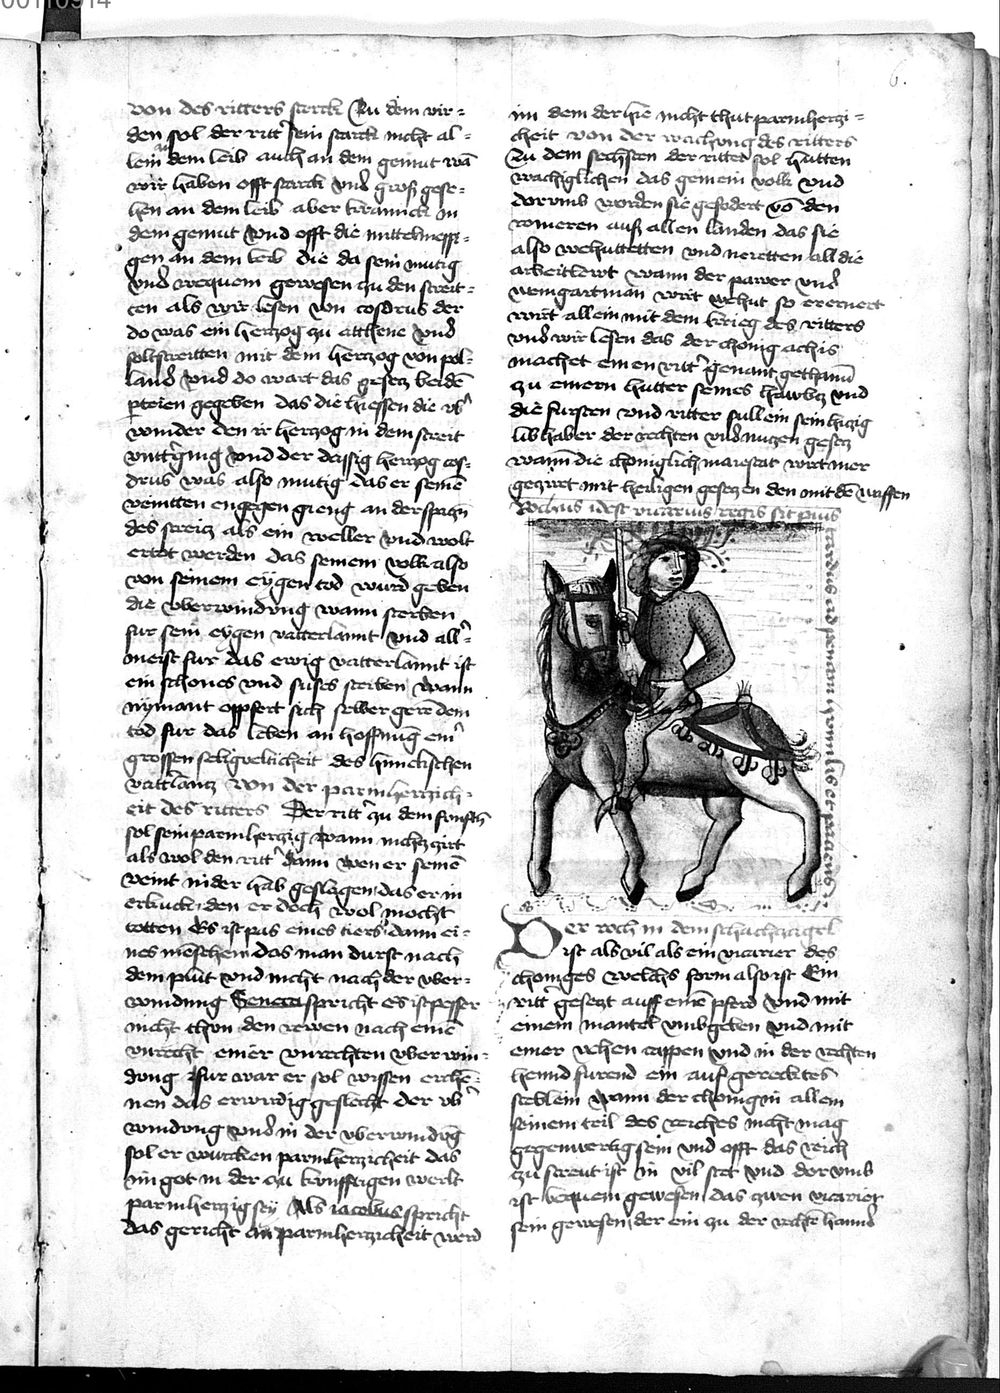 00110914
6.
von des ritters sterck Zu dem vir-
den sol der ritter sein starck nicht al-
lein dem leib auch an dem gemut wā
wir haben offt starck vnd groß gese-
hen an dem leib aber kranck in
dem gemut vnd offt die mittelmessi-
gen an dem leib die da sein mutig
vnd wequem gewesen zu den streit-
ten als wir lesen von cosdrus der
do was ein hertzog zu atthene vnd
solt streitten mit dem hertzog von pol-
land vnd do wart das gesetz beidē
gegeben das die hiessen die vb'
winder den ir hertzog in dem streit
vntt'ging vnd der dassig hertzog cos-
drus was also mutig das er seinē
veintten engegen gieng an der spitzn
des streitz als ein weller vnd wolt
ertot werden das seinem volk also
von seinem eygen tod wurd geben
die vberwindung wann sterben
fur sein eygen vatterlannt vnd all'-
meist fur das ewig vatterlannt ist
ein schones vnd suses sterben wann
nymant oppfert sich selber gerē dem
tod fur das leben an hoffnug ein'
grossen seligveltickeit des himelischen
vattlantz von der parmhertzich-
eit des ritters Der ritt' zu dem funftn
sol sein parmhertzig wann nichtz zirt
als wol den ritt' dann wen er seinē
veint nider hab geslagen das er in
erkuck den er doch wol mocht
totten Es ist pas eines tiers dann ei-
nes menschen das man durst nach
dem plut vnd nicht nach der vber-
windung Seneca spricht es ist pesser
nicht thon den rewen nach einē
vnrecht einer vnrechten vberwin-
dung fur war er sol wyssen erken-
nen das erwirdig geslecht der vb'
windong vnd in der vberwindūg
sol er wurcken parmhertzicheit das
im got in der zu kunfftigen werlt
parmhertzig sey Als iacobus spricht
das gericht an parmhertzicheit werd
im dem der hie nicht thut parmhertzi-
cheit von der wachung des ritters
Zu dem sechsten der ritter sol hutten
wachiglichen das gemein volk vnd
dorumb worden sie gefodert vō den
romeren auß allen landen das sie
also wehuttetten vnd neretten all die
arbeitkewt wann der pawer vnd
weingartman wirt wehut so er ernert
wirt allein mit dem krieg des ritters
vnd wir lesen das der chonig achis
machet einen ritt' genant
zu einem hutter seines hawbtz vnd
die fursten vnd ritter sullein sein hitzig
libhaber der rechten vnd nutzen gesetz
wann die choniglich maiestat wirt mer
gezirt mit heiligen gesetzen den mit dē waffen
Rochus idest vicarius regis sit pius
Der roch in dem schachzagel
ist als vil als ein vicarier des
choniges welchs form also ist Ein
ritt' gesetzt auff einē pferd vnd mit
einem mantel vmbgeben vnd mit
einer vehen cappen vnd in der rechten
hennd furend ein auf gerecktes
steblein wann der chonig in allem
seinem teil des reiches nicht mag
gegenwertig sein vnd offt das reich
zu streut ist in vil stet vnd dorumb
ist bequem gewesen das zwen vicarier
sein gewesen der ein zu der rechten hannd